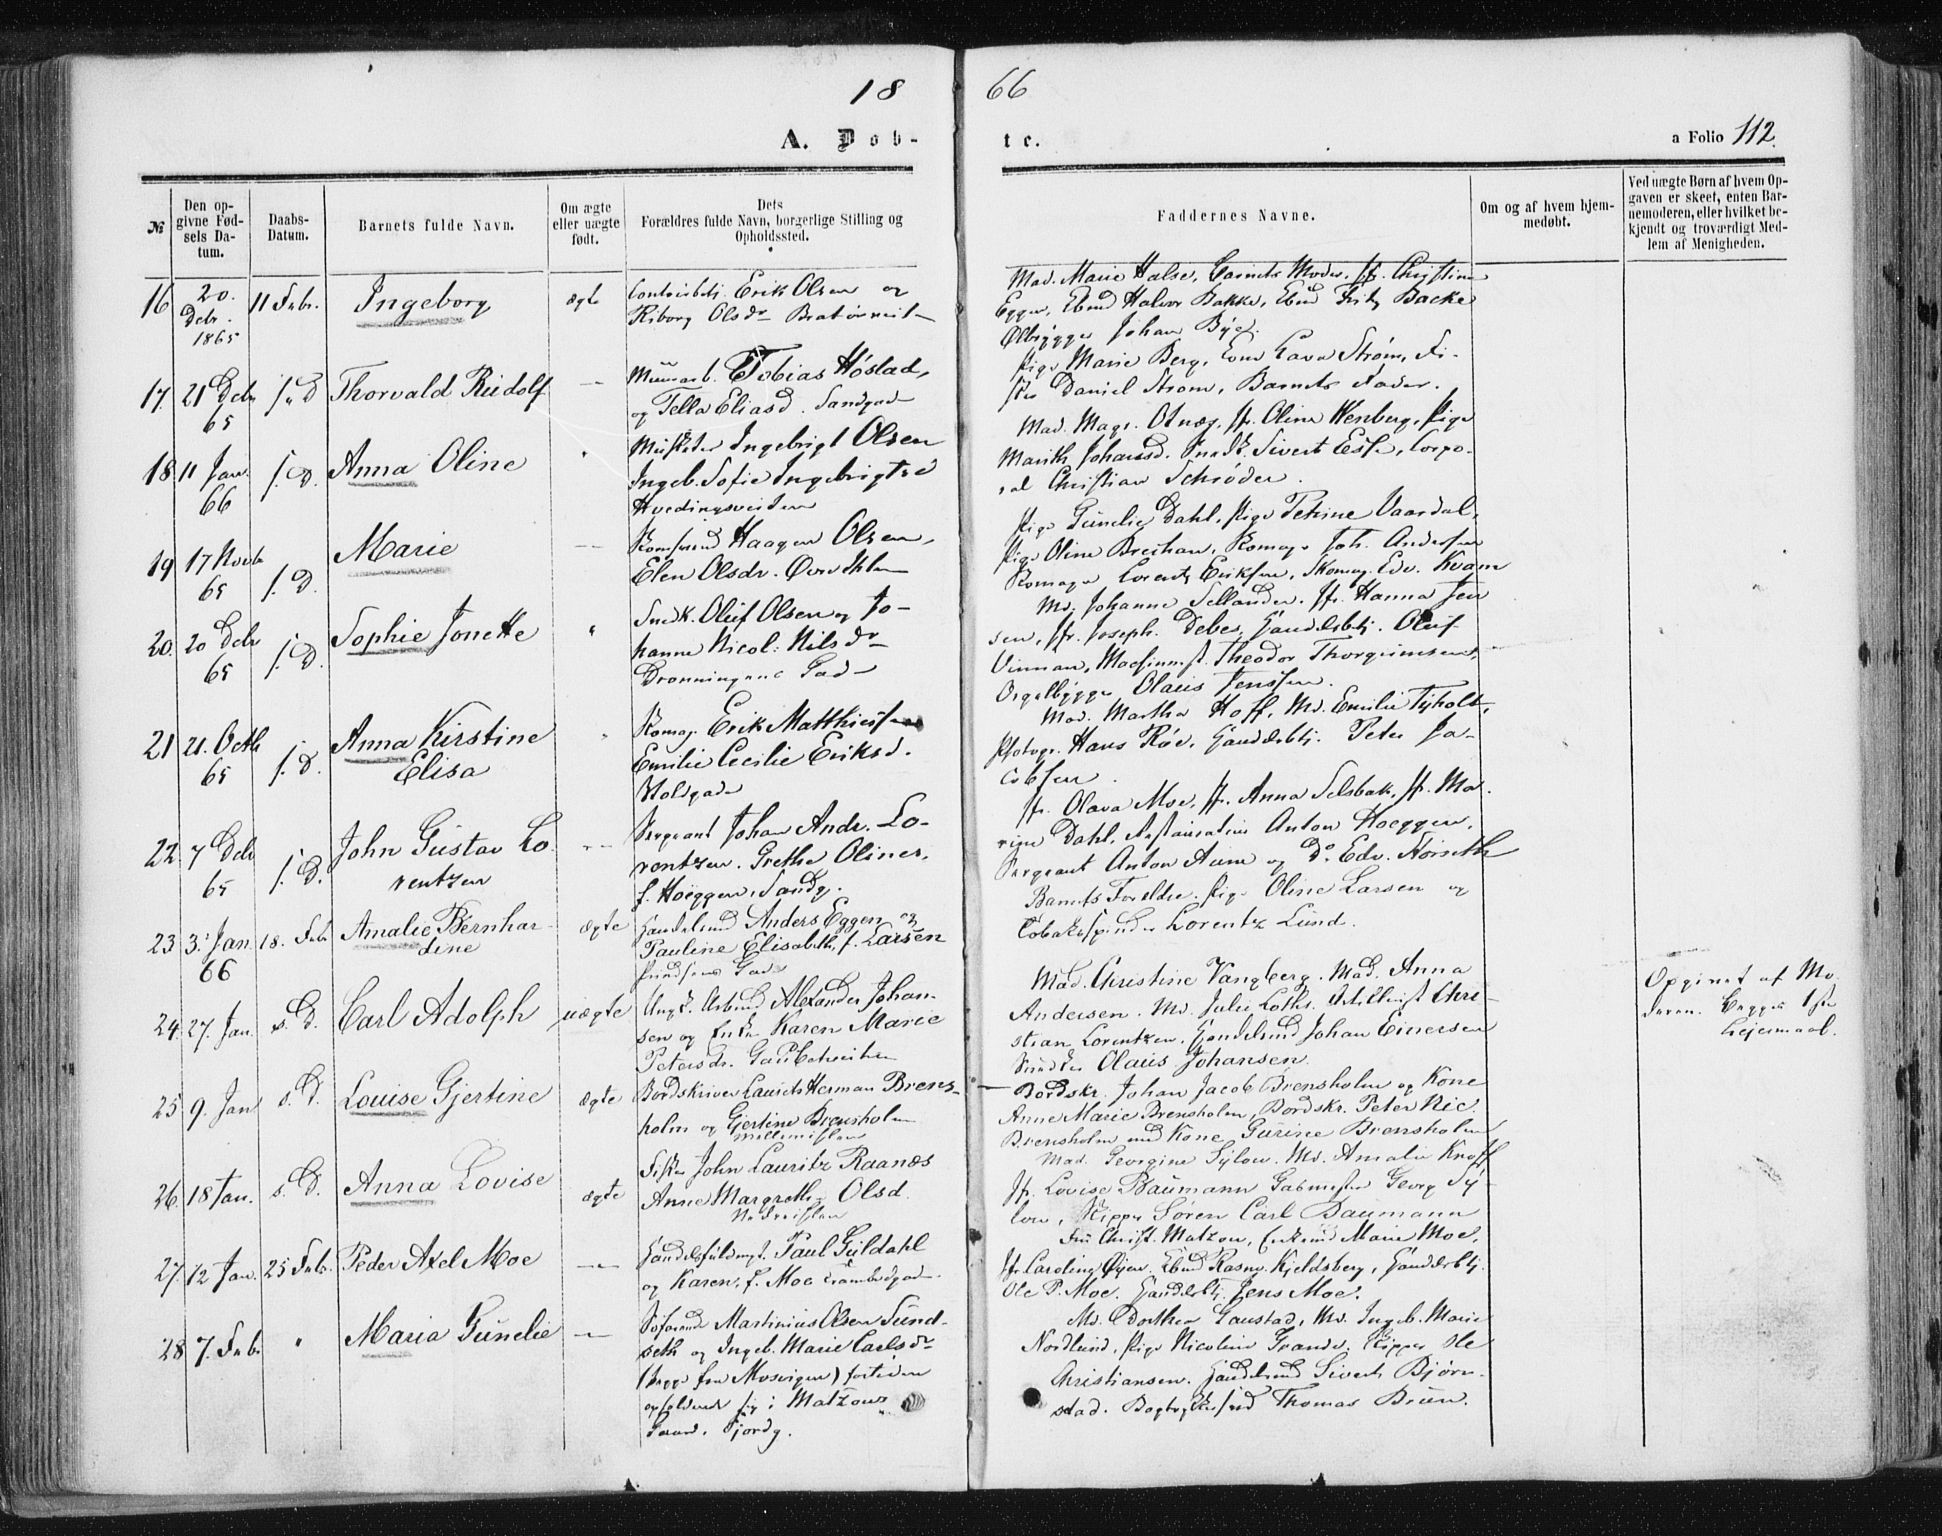 18 66
A. Döb- te.
a Folio 112.
№
Den op-
givne Fød-
sels Da-
tum.
Daabs-
Datum.
Barnets fulde Navn.
Om ægte
eller uægte
født.
Dets
Forældres fulde Navn, borgerlige Stilling og
Opholdssted.
Faddernes Navne.
Om og af hvem hjem-
medøbt.
Ved uægte Børn af hvem Op-
gaven er skeet, enten Bar-
nemoderen, eller hvilket be-
kjendt og troværdigt Med-
lem af Menigheden.
16 20. Debr. 1865 11 Febr. Ingeborg ægte
Erik Olsen og
Olsdr
Mad. Marie Halse, Barnets Moder, Jfr. Christine
Halvor Bakke, Fritz Backe
Johan Bye.
17. 21 Debr 65 s. D Thorvald Rudolf —
Tobias Høstad,
og Eliasd. Sandgad
Pige Marie Berg, Strøm, Fi-
sker Daniel Strøm, Barnets Fader.
18 11 Jan. 66 s. D. Anna Oline
Musketer Ingebrigt Olsen
Ingeb. Sofie Ingebrigtsd
Hvedingsveiten
Mad. Magr. Jfr. Oline Wenberg, Pige
Marith Johansd. Snedk. Sivert Corpo-
ral Christian Schrøder.
19 17 Novb 65 s. D. Marie —
Haagen Olsen,
Elen Olsdr.
Pige Gunelie Dahl, Pige Petrine Vaardal,
Pige Oline Joh. Andersen
Lorentz Eriksen, Skomag. Edv. Kvam
20. 20 Debr 65 s. D. Sophie Jonette "
Snedk. Oluf Olsen og Jo-
hanne Nicol: Nilsdr
Dronningens Gad
Md. Johanne Sellander. Jfr. Hanna Jen
sen, Jfr. Joseph. Debes, Handelsbtj. Oluf
Vinnan, Theodor Thorgrimsent,
Orgelbygger Olaus Jenssen.
21 21. Octb 65 s. D. Anna Kirstine
Elisa
Erik Matthiesen
Emilie Cecilie Eriksd.
Voldgade
Mad. Martha Hoff, Md. Emilie Tyholt,
Photogr. Hans Røe, Handelsbtj. Peter Ja-
cobsen.
22. 7 Debr 65 s. D. John Gustav Lo
rentzen
Sergeant Johan Andr. Lo-
rentzen. Grethe Oline,
f. Hoeggen, Sandg.
Jfr. Olava Moe, Jfr. Anna Selsbak, Jfr. Ma-
rine Dahl, Anton Hoeggen,
Sergeant Anton Aune og Do. Edv.
23 3. Jan. 66 18. Febr Amalie Bernhar-
dine ægte
Handelsmd Anders Eggen og
Pauline Elisabeth, f. Larsen
Prindsens Gade
Barnets Foreldre. Pige Oline Larsen og
Tobakspinder Lorentz Lund.
24. 27. Jan. s. D. Carl Adolph uægte
Ungk. Arbmd Alexander Johan-
sen og Enke Karen Marie
Petersdr.
Mad. Christine Vangberg. Mad. Anna
Andersen. Md. Julie Artillerist Chri-
stian Lorentzen. Handelsmd Johan Einersen
Olaus Johansen.
Opgivet af Mo
deren. Begges 1ste
Leiermaal.
25 9. Jan s. D. Louise Gjertine ægte
Bordskriver Laurits Herman Brens-
holm og Gjertine Brensholm
Bordskr. Johan Jacob Brensholm og Kone
Anne Marie Brensholm, Bordskr. Peter Nic.
Brensholm med Kone Gurine Brensholm
26. 18 Jan. s. D. Anna Lovise ægte
Fisker John Lauritz Raanæs
Anne Margrethe Olsd.
Mad. Georgine Sylow. Md. Amalie Knoff
Jfr. Lovise Baumann Georg Sy-
low, Skipper Søren Carl Baumann
27. 12 Jan. 25 Febr. Peder Axel Moe —
Handelsfuldmgt. Paul Guldahl
og Karen, f. Moe
Fru Christ. Matzow, Marie Moe,
Jfr. Caroline Øyen. Rasm. Kjeldsberg, Handelsbtj.
Ole P. Moe. Handelsbtj. Jens Moe.
28 7. Febr " Maria Gunelie —
Martinius Olsen Sund-
seth og Ingeb. Marie Carlsdr
(begge fra Mosvigen) fortiden
opholdende sig i Matzows
Gaard, Fjordg.
Md. Dorthea Gaustad, Md. Ingeb. Marie
Nordlund, Pige Nicoline Skipper Ole
Christiansen. Handelsmd Sivert Bjørn-
stad. Thomas Bruun.